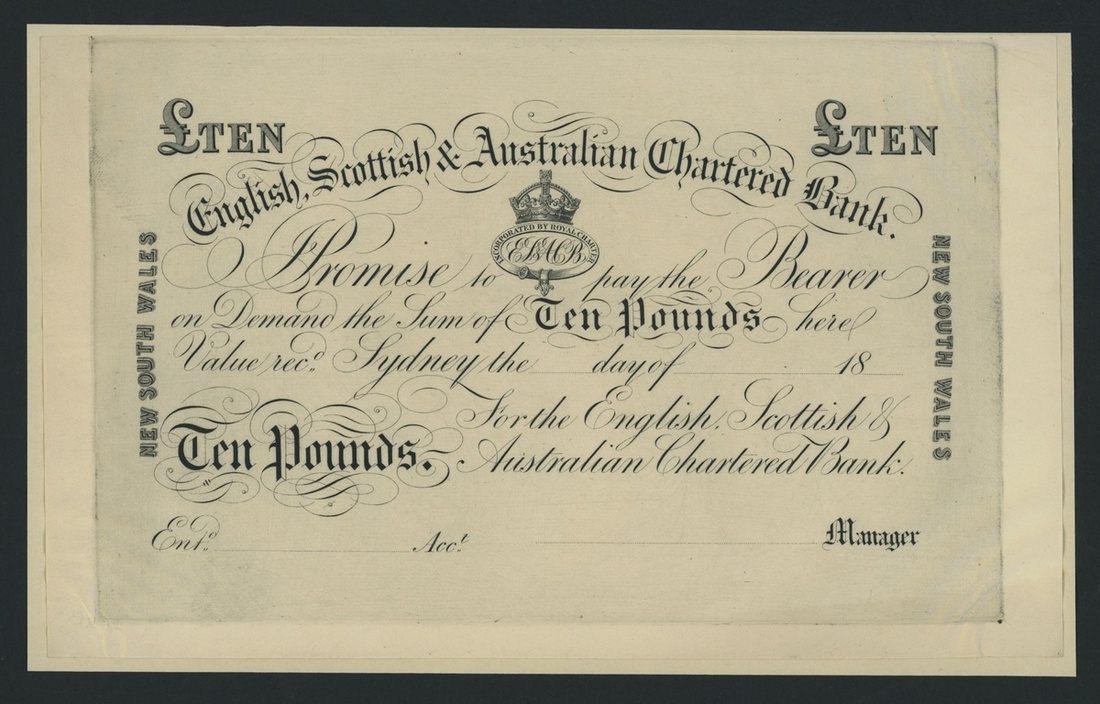 £TEN £TEN
English, Scottish & Australian Chartered Bank.
INCORPORATED BY ROYAL CHARTER
ES&ACB
NEW SOUTH WALES
NEW SOUTH WALES
Promise to pay the Bearer
on Demand the Sum of Ten Pounds here
Value rec.d Sydney the day of 18
Ten Pounds.
For the English, Scottish &
Australian Chartered Bank.
Ent.d Acc.t Manager